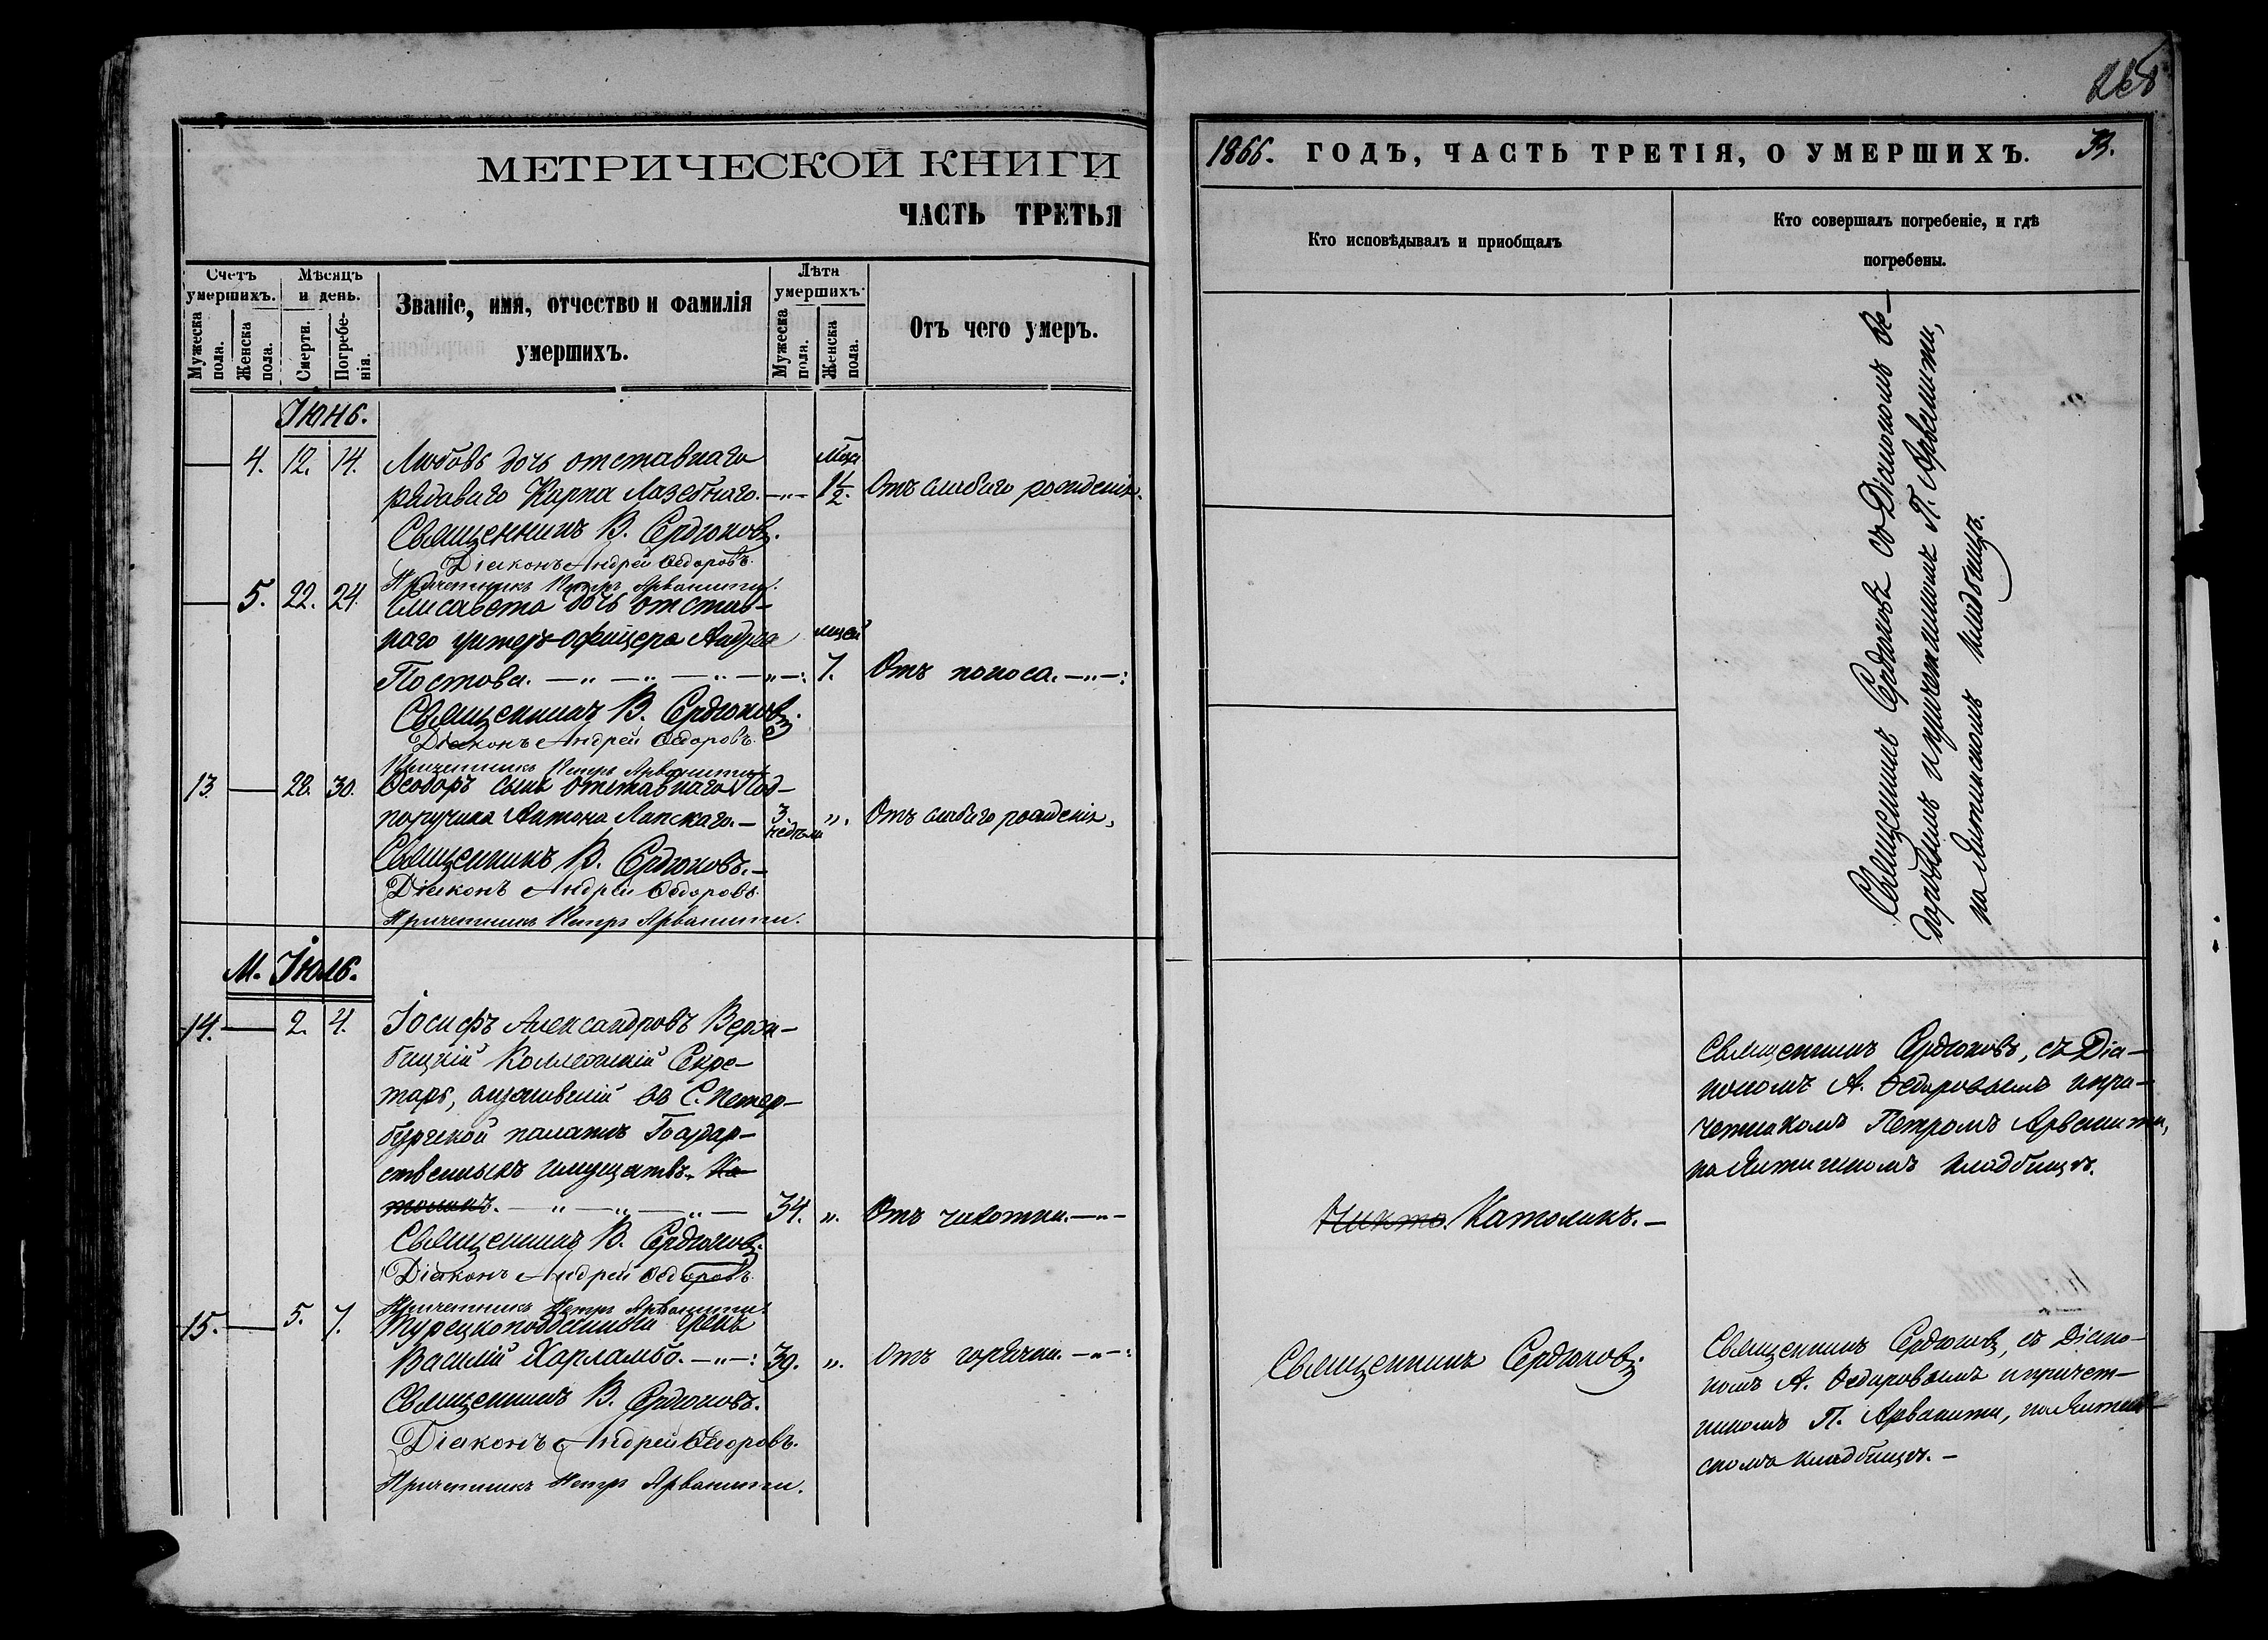 268
МЕТРИЧЕСКОЙ КНИГИ
ЧАСТЬ ТРЕТЬЯ
Счетъ умершихъ.
Мужеска пола.
Женска пола.
Мѣсяцъ и день.
Смерти.
Погребенія.
Званіе, имя, отчество и фамилія
умершихъ.
Лѣта умершихъ.
Мужеска пола.
Женска пола.
Отъ чего умеръ.
Іюнь.
4. 12. 14. Любовь дочь отставнаго
рядоваго Карпа Лазебнаго. 1½. Отъ слабаго рожденія.
Священникъ В. Сердюковъ.
Діаконъ Андрей Ѳедоровъ.
Причетникъ Петръ Арванити.
5. 22. 24. Елисавета дочь отстав-
наго унтеръ-офицера Андрея мцей
Постова. 7. Отъ поноса.
Священникъ В. Сердюковъ.
Діаконъ Андрей Ѳедоровъ.
Причетникъ Петръ Арванити.
13 28. 30. Ѳеодоръ сынъ отставнаго Под-
поручика Антона Лапскаго. 3. недѣли ". Отъ слабаго рожденія.
Священникъ В. Сердюковъ.
Діаконъ Андрей Ѳедоровъ.
Причетникъ Петръ Арванити.
М. Іюль.
14. 2. 4. Іосифъ Александровъ Верж-
бицкій Коллежскій Секре-
тарь, служившій въ С. Петер-
бургской палатѣ Государ-
ственныхъ имуществъ. Ка-
толикъ. 34. ". Отъ чахотки.
Священникъ В. Сердюковъ.
Діаконъ Андрей Ѳедоровъ.
Причетникъ Петръ Арванити.
15. 5. 7. Турецкоподданный грекъ
Василій Харламбо. 39. ". Отъ горячки.
Священникъ В. Сердюковъ.
Діаконъ Андрей Ѳедоровъ.
Причетникъ Петръ Арванити.
1866. ГОДЪ, ЧАСТЬ ТРЕТІЯ, О УМЕРШИХЪ.
Кто исповѣдывалъ и приобщалъ
Кто совершалъ погребеніе, и гдѣ
погребены.
Священникъ Сердюковъ съ Діакономъ Ѳе-
доровымъ и причетникомъ П. Арванити,
на Ялтинскомъ кладбищѣ.
Никто. Католикъ.
Священникъ Сердюковъ, съ Діа-
кономъ А. Ѳедоровымъ и при-
четникомъ Петромъ Арванити,
на Ялтинскомъ кладбищѣ.
Священникъ Сердюковъ.
Священникъ Сердюковъ, съ Діако-
номъ А. Ѳедоровымъ и причет-
никомъ П. Арванити, на Ялтин-
скомъ кладбищѣ.